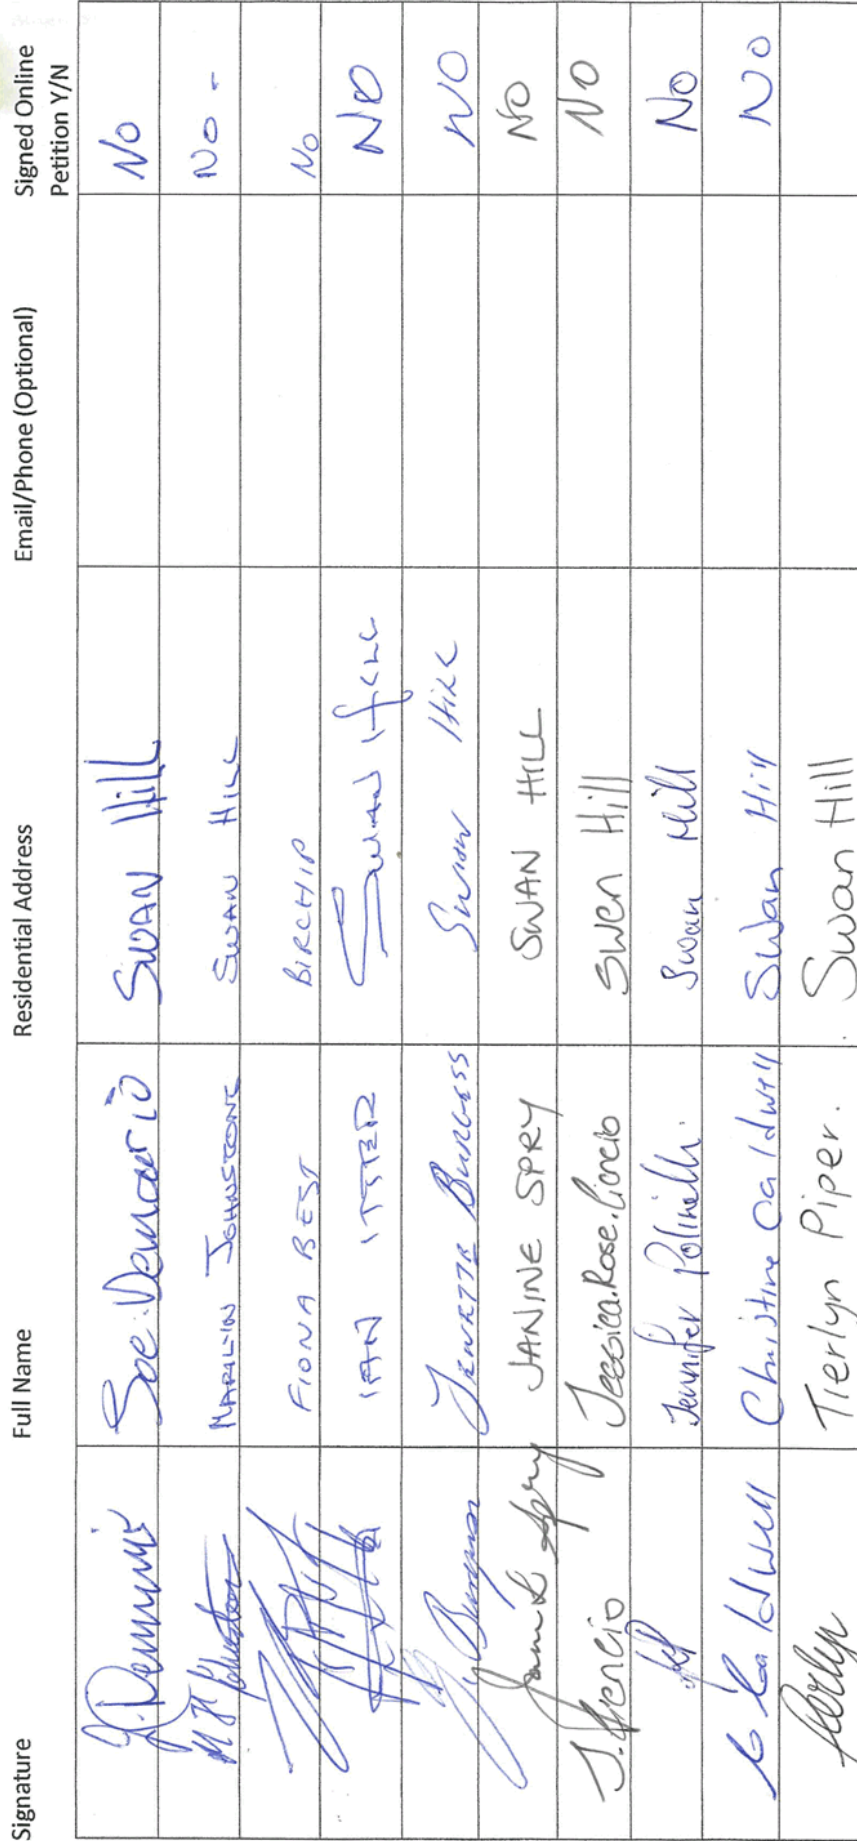 Signature Full Name Residential Address Email/Phone (Optional) Signed Online Petition Y/N
Joe Demario SWAN Hill No
MARILYN JOHNSTONE SWAN HILL NO -
FIONA BEST BIRCHIP No
IAN ITTER SWAN HILL NO
J Burgess JENETTE BURGESS SWAN HILL NO
Janine Spry JANINE SPRY SWAN HILL NO
Jessica.Rose. Swan Hill No
Jennifer Polinelli. Swan Hill No
C Caldwell Christine Caldwell Swan Hill NO
Tierlyn Piper. Swan Hill